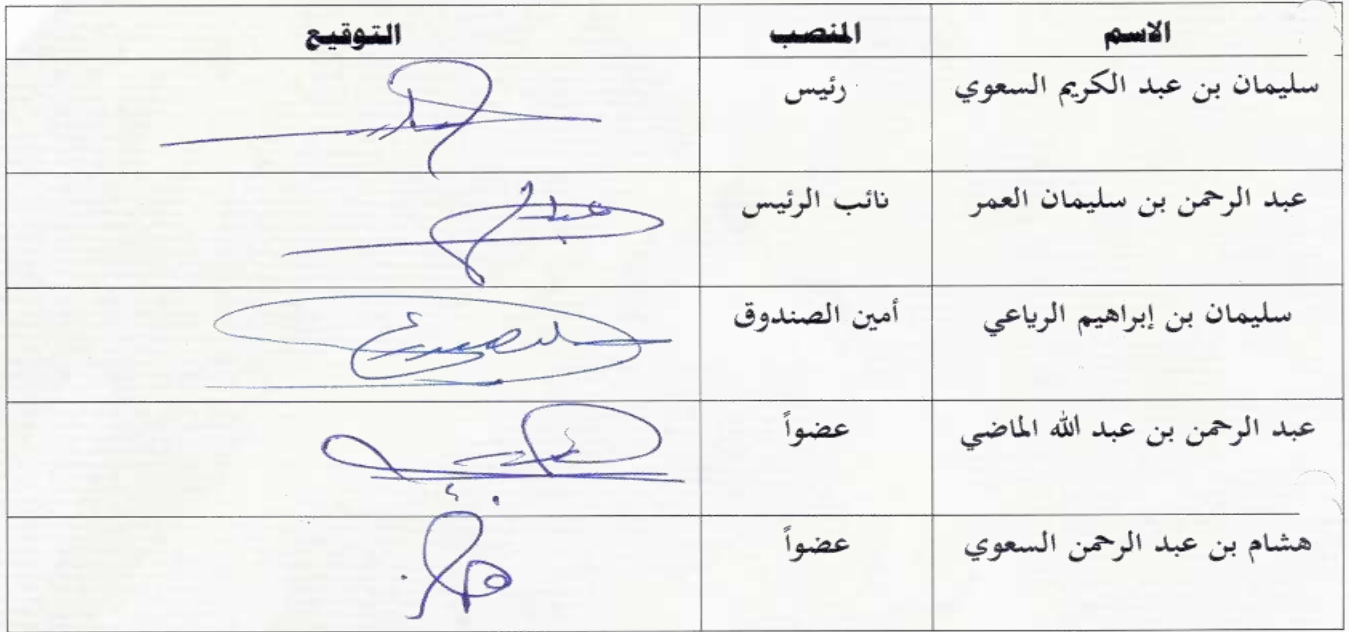 الاسم المنصب التوقيع
سليمان بن عبد الكريم السعوي رئيس
عبد الرحمن بن سليمان العمر نائب الرئيس
سليمان بن إبراهيم الرباعي أمين الصندوق
عبد الرحمن بن عبد الله الماضي عضواً
هشام بن عبد الرحمن السعوي عضواً